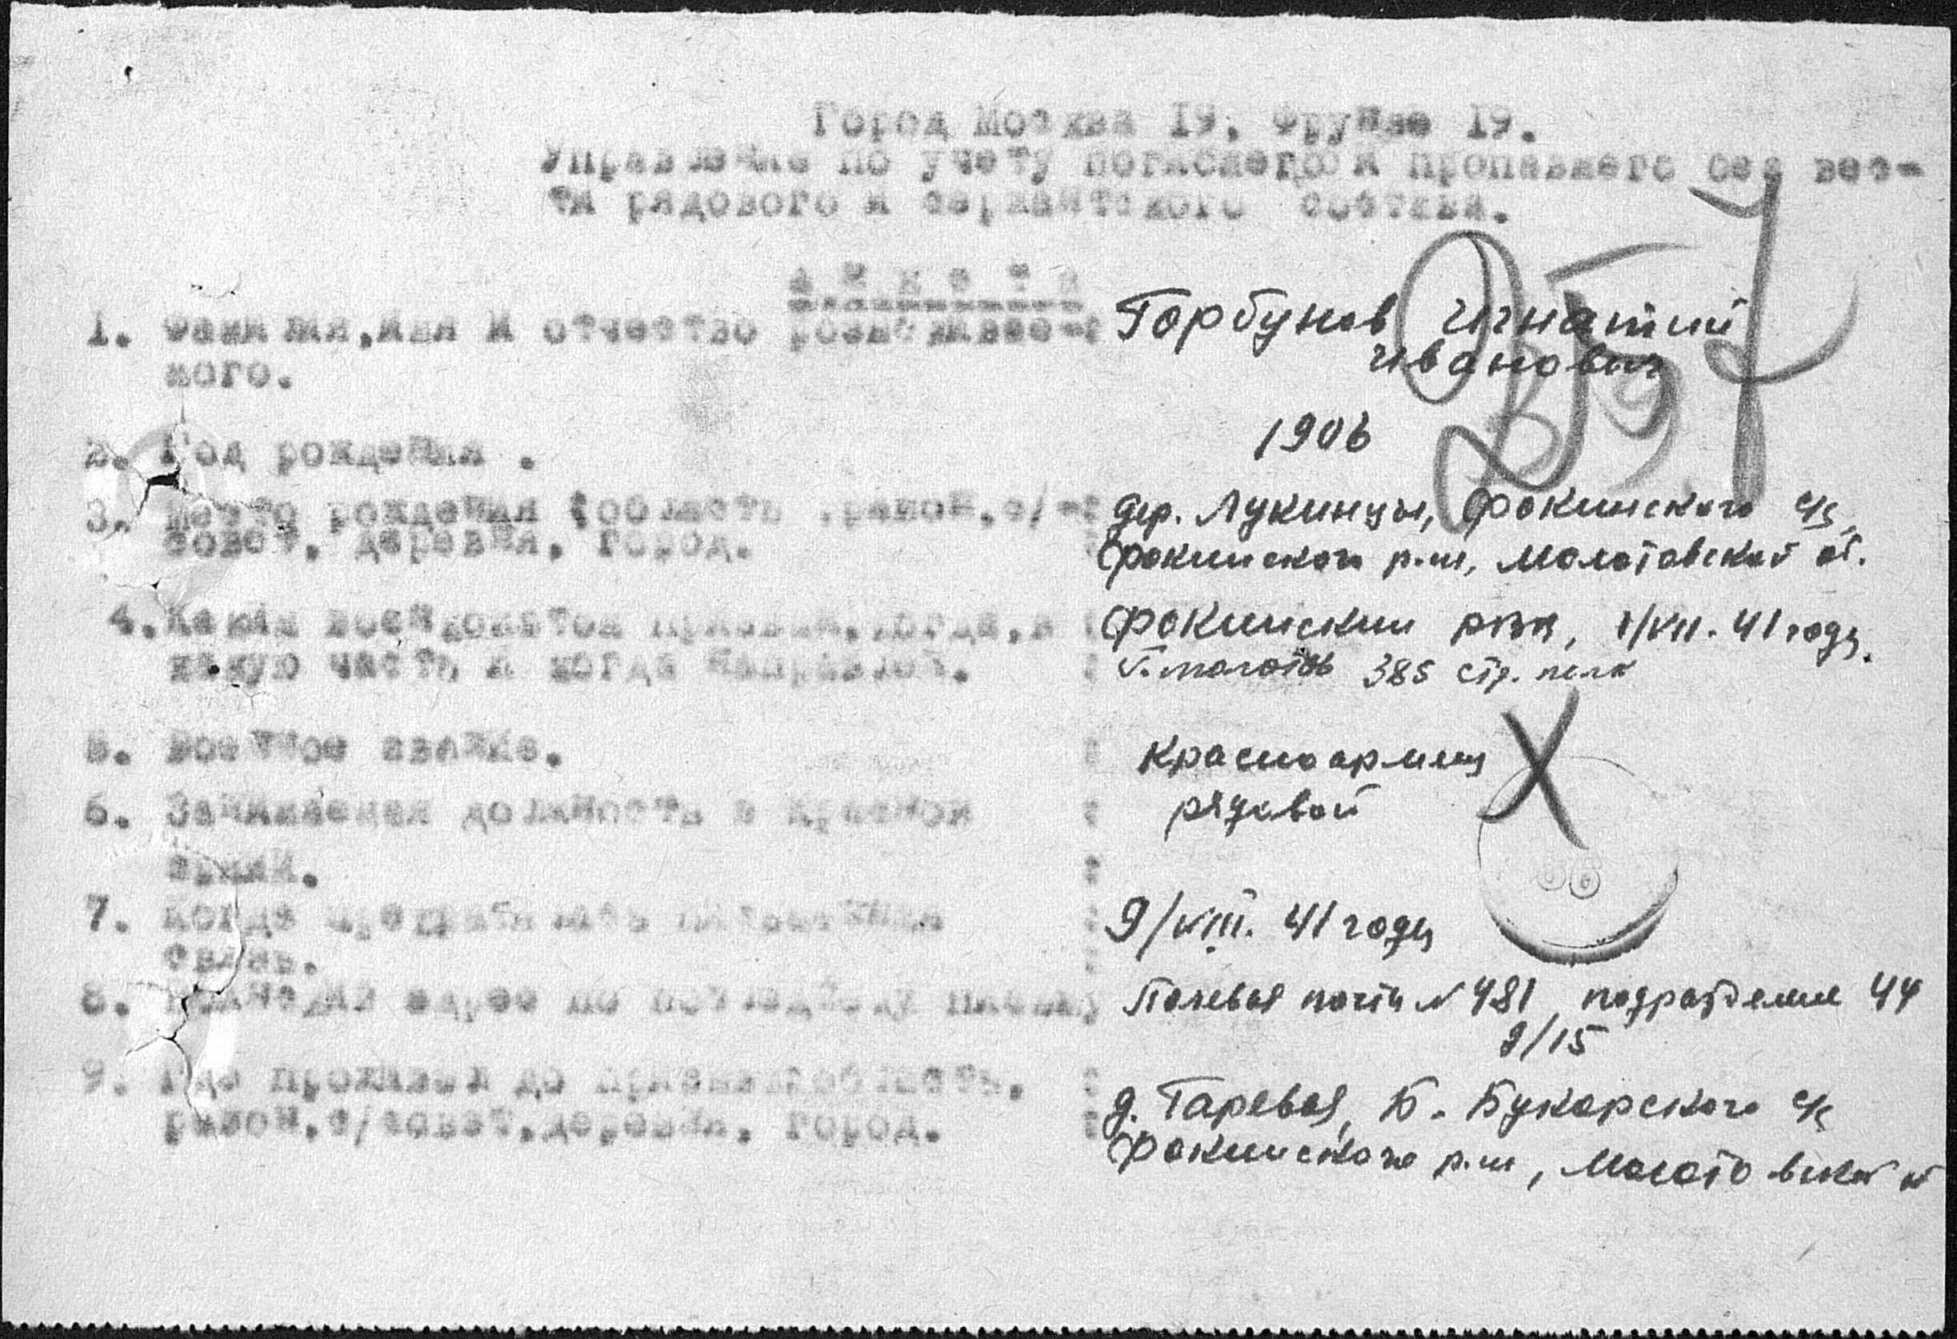 Город Москва 19, Фрунзе 19.
Управление по учету погибшего и пропавшего без вес-
ти рядового и сержантского состава.
А Н К Е Т А
1. Фамилия, имя и отчество розыскивае-: Горбунов Игнатий
мого. Иванович
2. Год рождения . 1906
3. Место рождения (область, район, с/-: дер. Лукинцы, Фокинского с/с,
совет, деревня, город. Фокинского р-на, Молотовской об.
4. Каким военкоматом призван, когда, в : Фокинский рвк, 1/VII. 41 году.
какую часть и когда направлен. : г. Молотов 385 стр. полк
5. Военное звание. : Красноармеец
6. Занимаемая должность в Красной : рядовой
армии. :
66
7. Когда прекратилась письменная : 9/VIII. 41 году
связь. :
8. адрес по последнему письму Полевая почта N 481, подразделение 44
9/15
9. Где проживал до призыва: область, : д. Гаревая, Б. Букорского с/с
район, с/совет, деревня, город. : Фокинского р-на, Молотовской